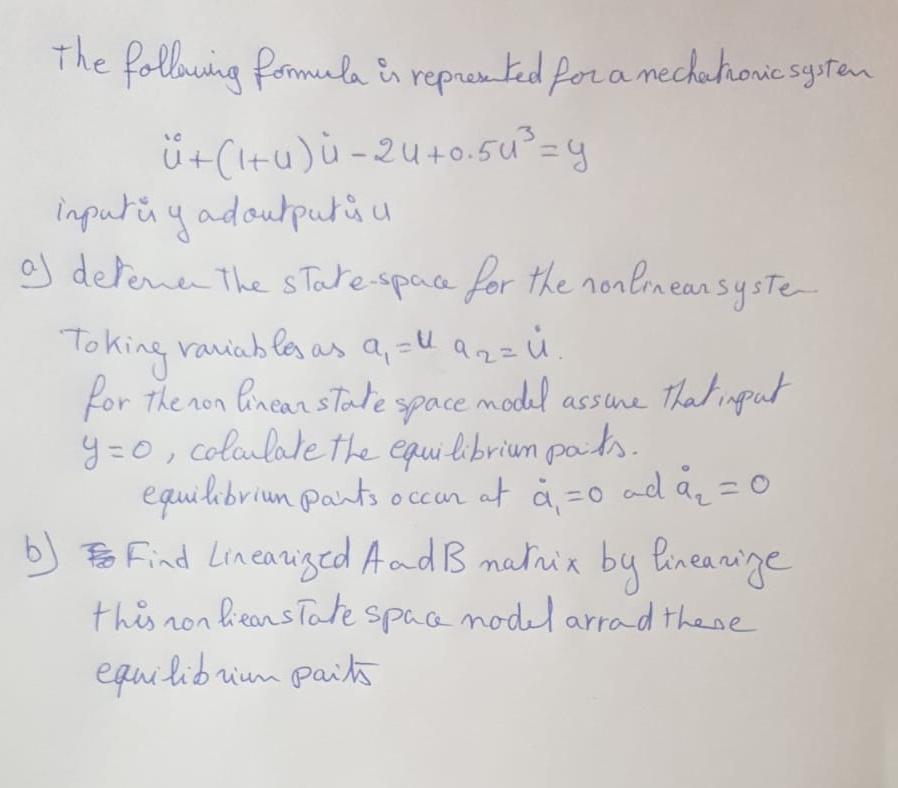 The following formula is represented for a mechatronic system
ü+(1+u)u̇-2u+0.5u³=y
input is y ad output is u
a) determen the state-space for the nonlinear syste
Toking variables as a₁=u a₂=u̇.
for the non linear state space model assume that input
y=0, calculate the equilibrium paits.
equilibrium pants occur at ȧ₁=0 ad ȧ₂=0
b) Find Linearized A ad B matrix by linearize
this non liear state space model arrad these
equilibrium paits